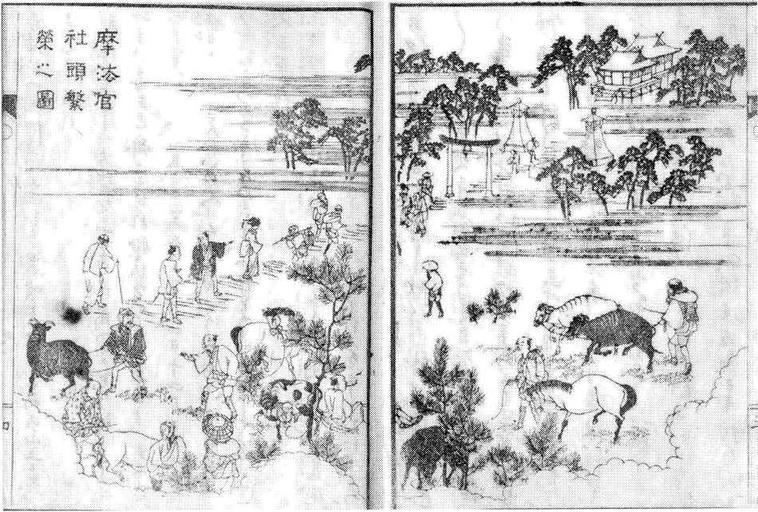 摩法宮
社頭繁
榮之圖